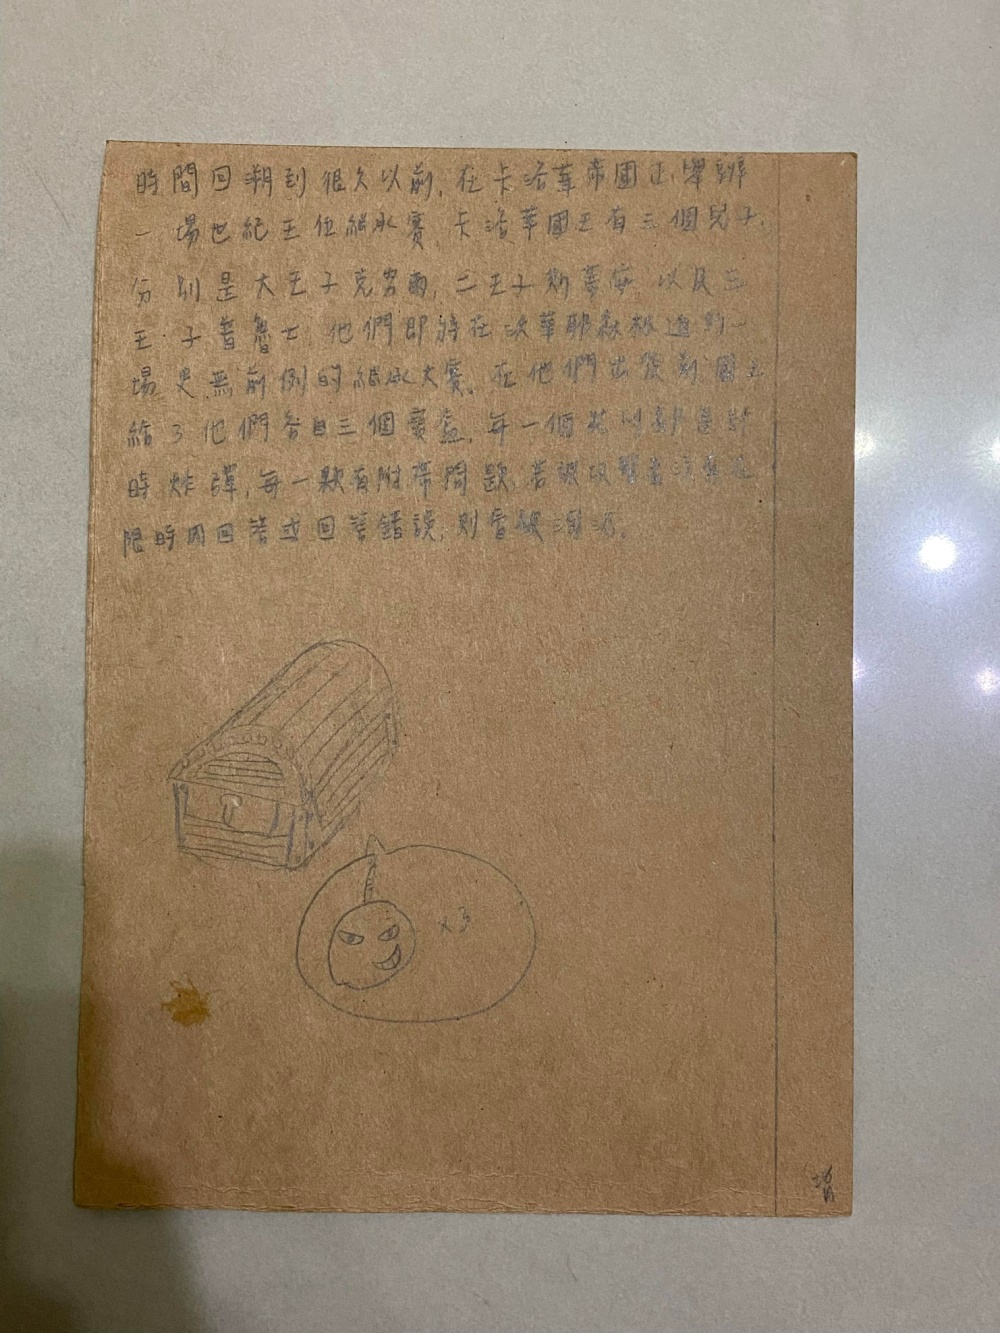 時間回溯到很久以前,在卡洛華帝國正舉辦
一場世紀王位繼承賽,卡洛華國王有三個兒子,
分別是大王子克勞爾,二王子斯蒂安 以及三
王子普魯士 他們即將在次華耶 進行一
場史無前例的繼承大賽,在他們出發前 國王
給了他們各自三個寶盒,每一個 都是計
時炸彈,每一顆有附帶問題,若 在
限時內回答或回答錯誤,則會被消滅.
x3